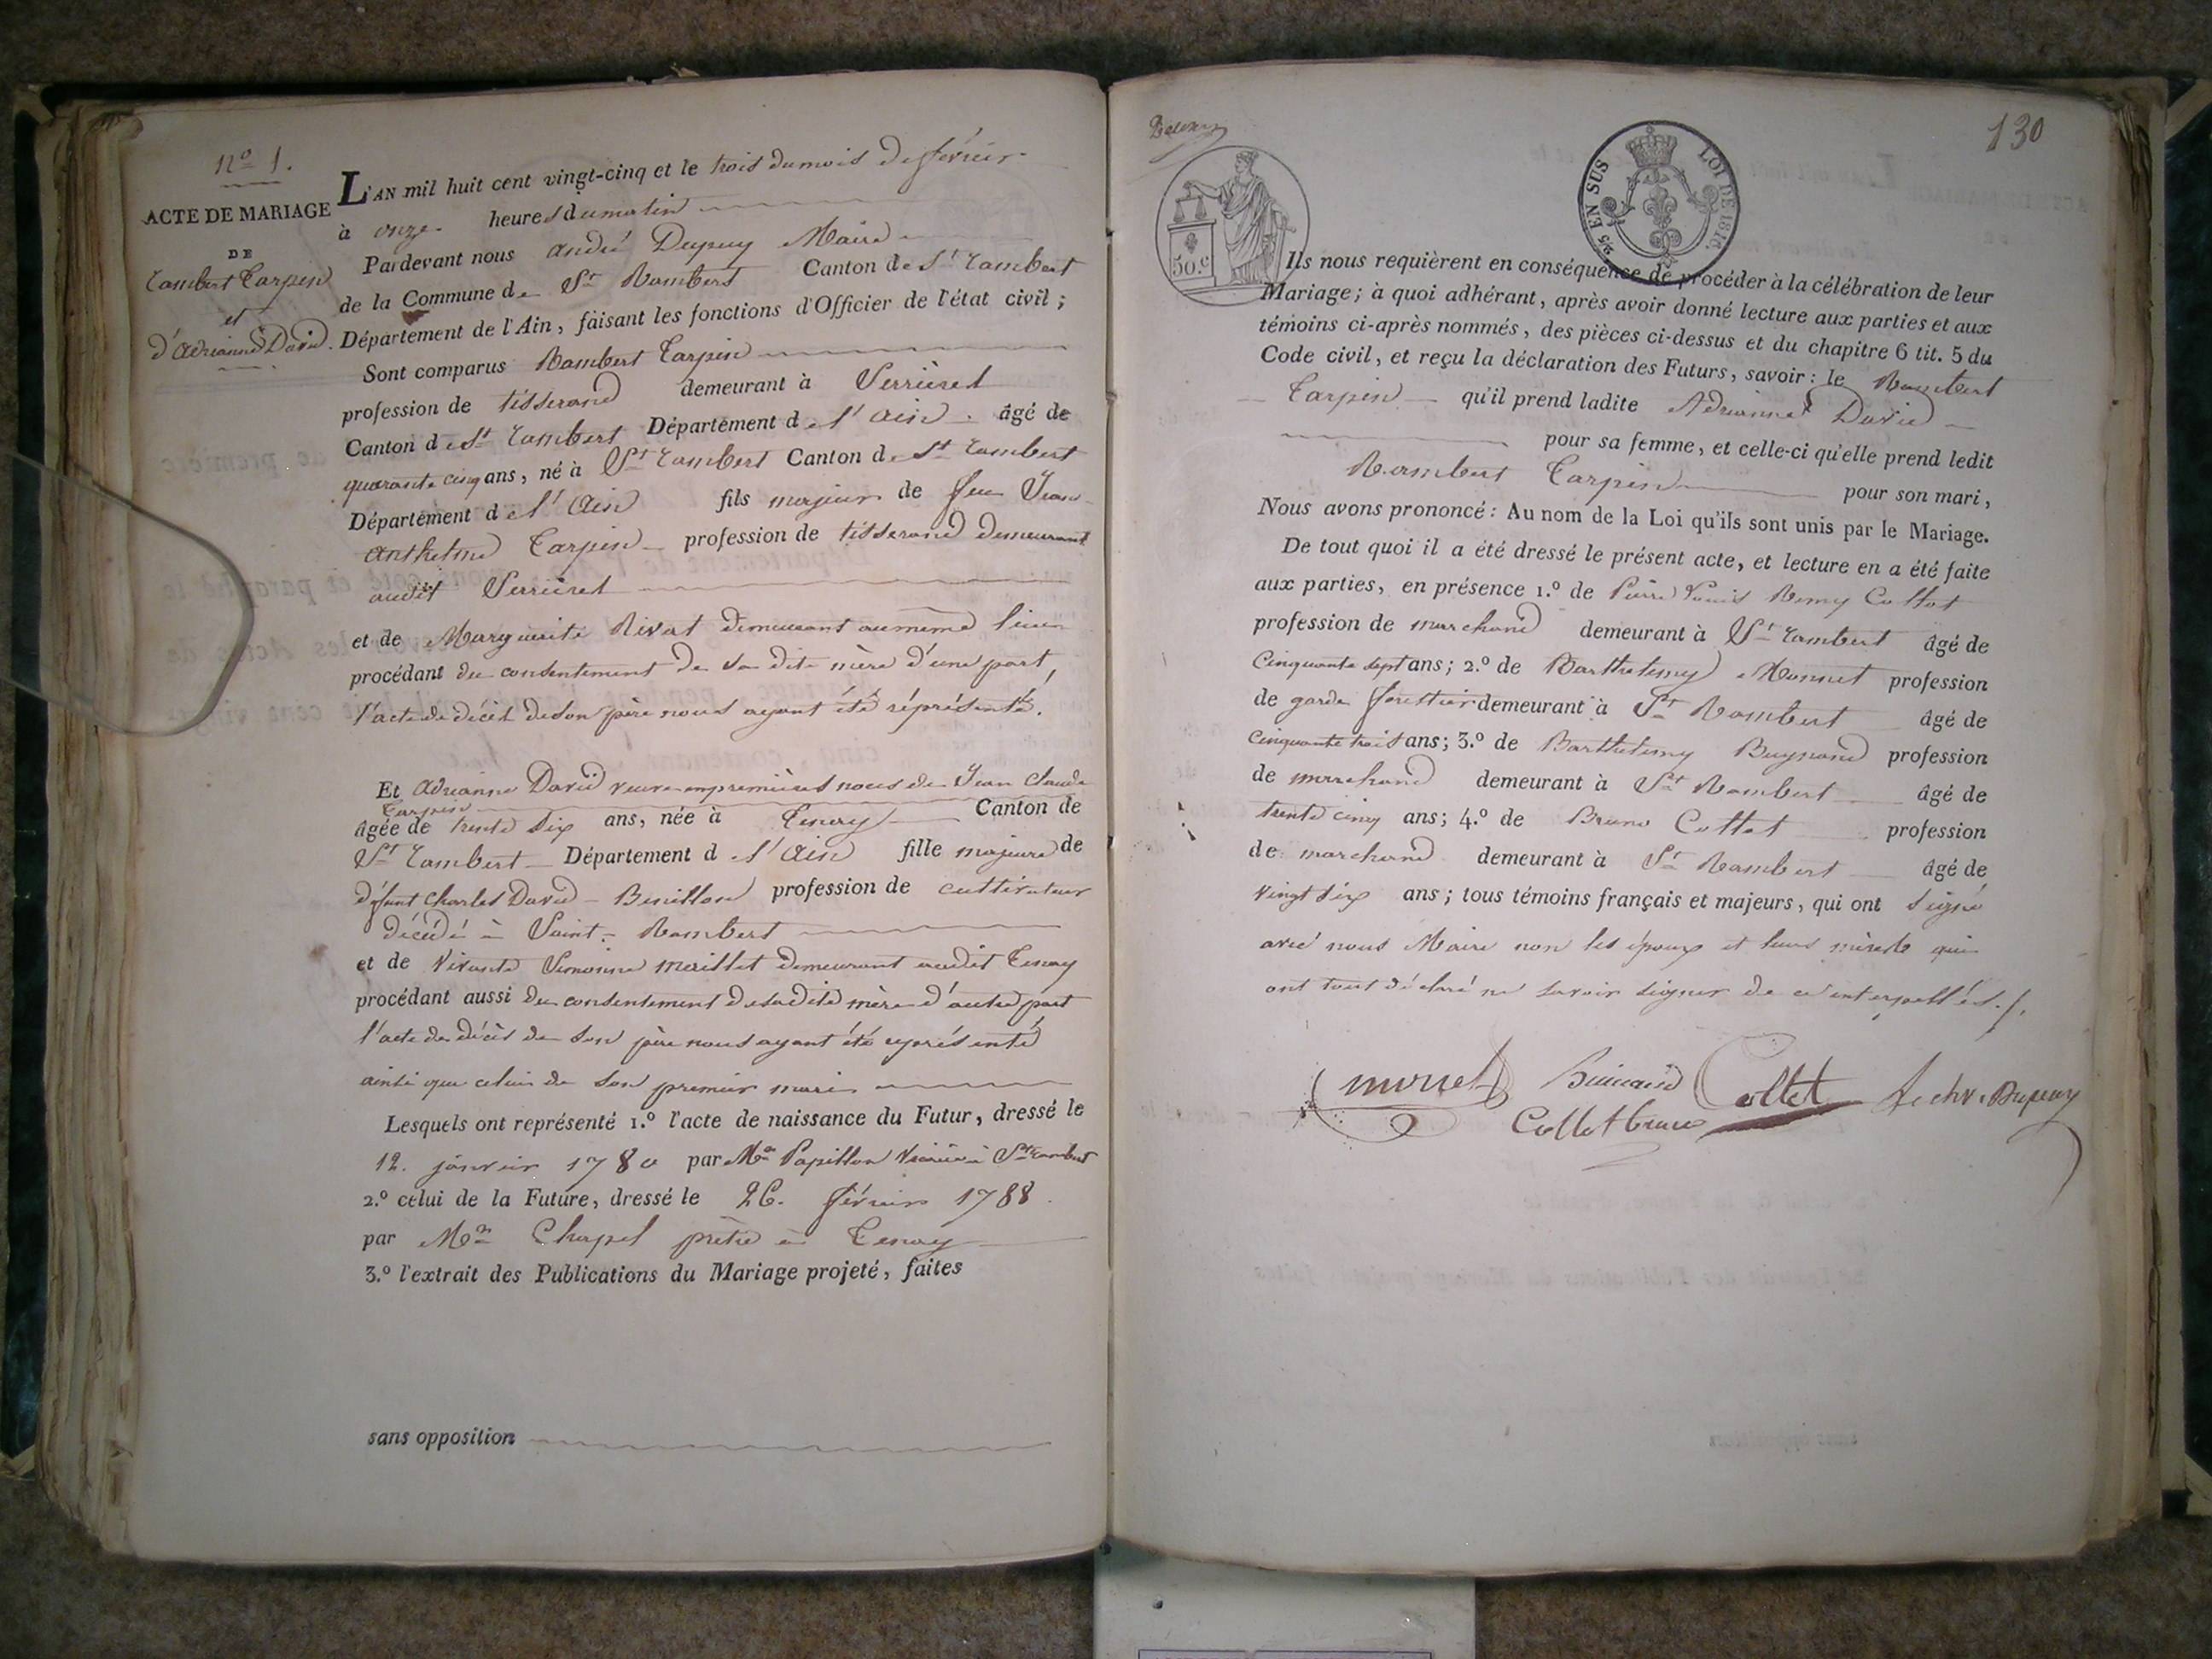 nº 1.
ACTE DE MARIAGE
DE
Rambert Tarpin
et
d'Adrianne David.
L'AN mil huit cent vingt-cinq et le trois du mois de février
à onze heures du matin
Pardevant nous andré Dupuy Maire
de la Commune de St Rambert Canton de St Rambert
Département de l'Ain, faisant les fonctions d'Officier de l'état civil ;
Sont comparus Rambert Tarpin
profession de tisserand demeurant à Serrières
Canton de St Rambert Département de l'Ain. âgé de
quarante cinq ans, né à St Rambert Canton de St Rambert
Département de l'Ain fils majeur de feu Jean
anthelme Tarpin profession de tisserand demeurant
audit Serrières
et de Marguerite Rivat demeurant au même lieu
procédant du consentement de sa dite mère d'une part,
l'acte de décès de son père nous ayant été réprésenté.
Et adrianne David veuve en premières noces de Jean Claude
Tarpin
âgée de trente six ans, née à Tenay Canton de
St Rambert Département de l'Ain fille majeure de
défunt Charles David-Benillon profession de cultivateur
décédé à Saint-Rambert
et de vivante maillet demeurant audit Tenay
procédant aussi du consentement de sadite mère d'autre part
l'acte de décès de son père nous ayant été représenté
ainsi que celui de son premier mari
Lesquels ont représenté 1.º l'acte de naissance du Futur, dressé le
12. janvier 1780 par Mr Papillon Vicaire à St Rambert
2.º celui de la Future, dressé le 26. février 1788.
par Mr Chapel prêtre à Tenay
3.º l'extrait des Publications du Mariage projeté, faites
sans opposition
130
50.c
25 EN SUS
LOI DE 1816.
Ils nous requièrent en conséquence de procéder à la célébration de leur
Mariage ; à quoi adhérant, après avoir donné lecture aux parties et aux
témoins ci-après nommés, des pièces ci-dessus et du chapitre 6 tit. 5 du
Code civil, et reçu la déclaration des Futurs, savoir : le Rambert
Tarpin qu'il prend ladite Adrianne David
pour sa femme, et celle-ci qu'elle prend ledit
Rambert Tarpin pour son mari,
Nous avons prononcé : Au nom de la Loi qu'ils sont unis par le Mariage.
De tout quoi il a été dressé le présent acte, et lecture en a été faite
aux parties, en présence 1.º de Pierre Louis Remy Collet
profession de marchand demeurant à St Rambert âgé de
Cinquante sept ans ; 2.º de Barthelemy Monnet profession
de garde forettier demeurant à St Rambert âgé de
Cinquante trois ans ; 3.º de Barthelemy Buynand profession
de marchand demeurant à St Rambert âgé de
trente cinq ans ; 4.º de Bruno Collet profession
de marchand demeurant à St Rambert âgé de
vingt six ans ; tous témoins français et majeurs, qui ont signé
avec nous Maire non les époux et leurs mères qui
ont tous déclaré ne savoir signer de ce interpellés ./.
monet Buinand Collet Dupuy
Collet bruno